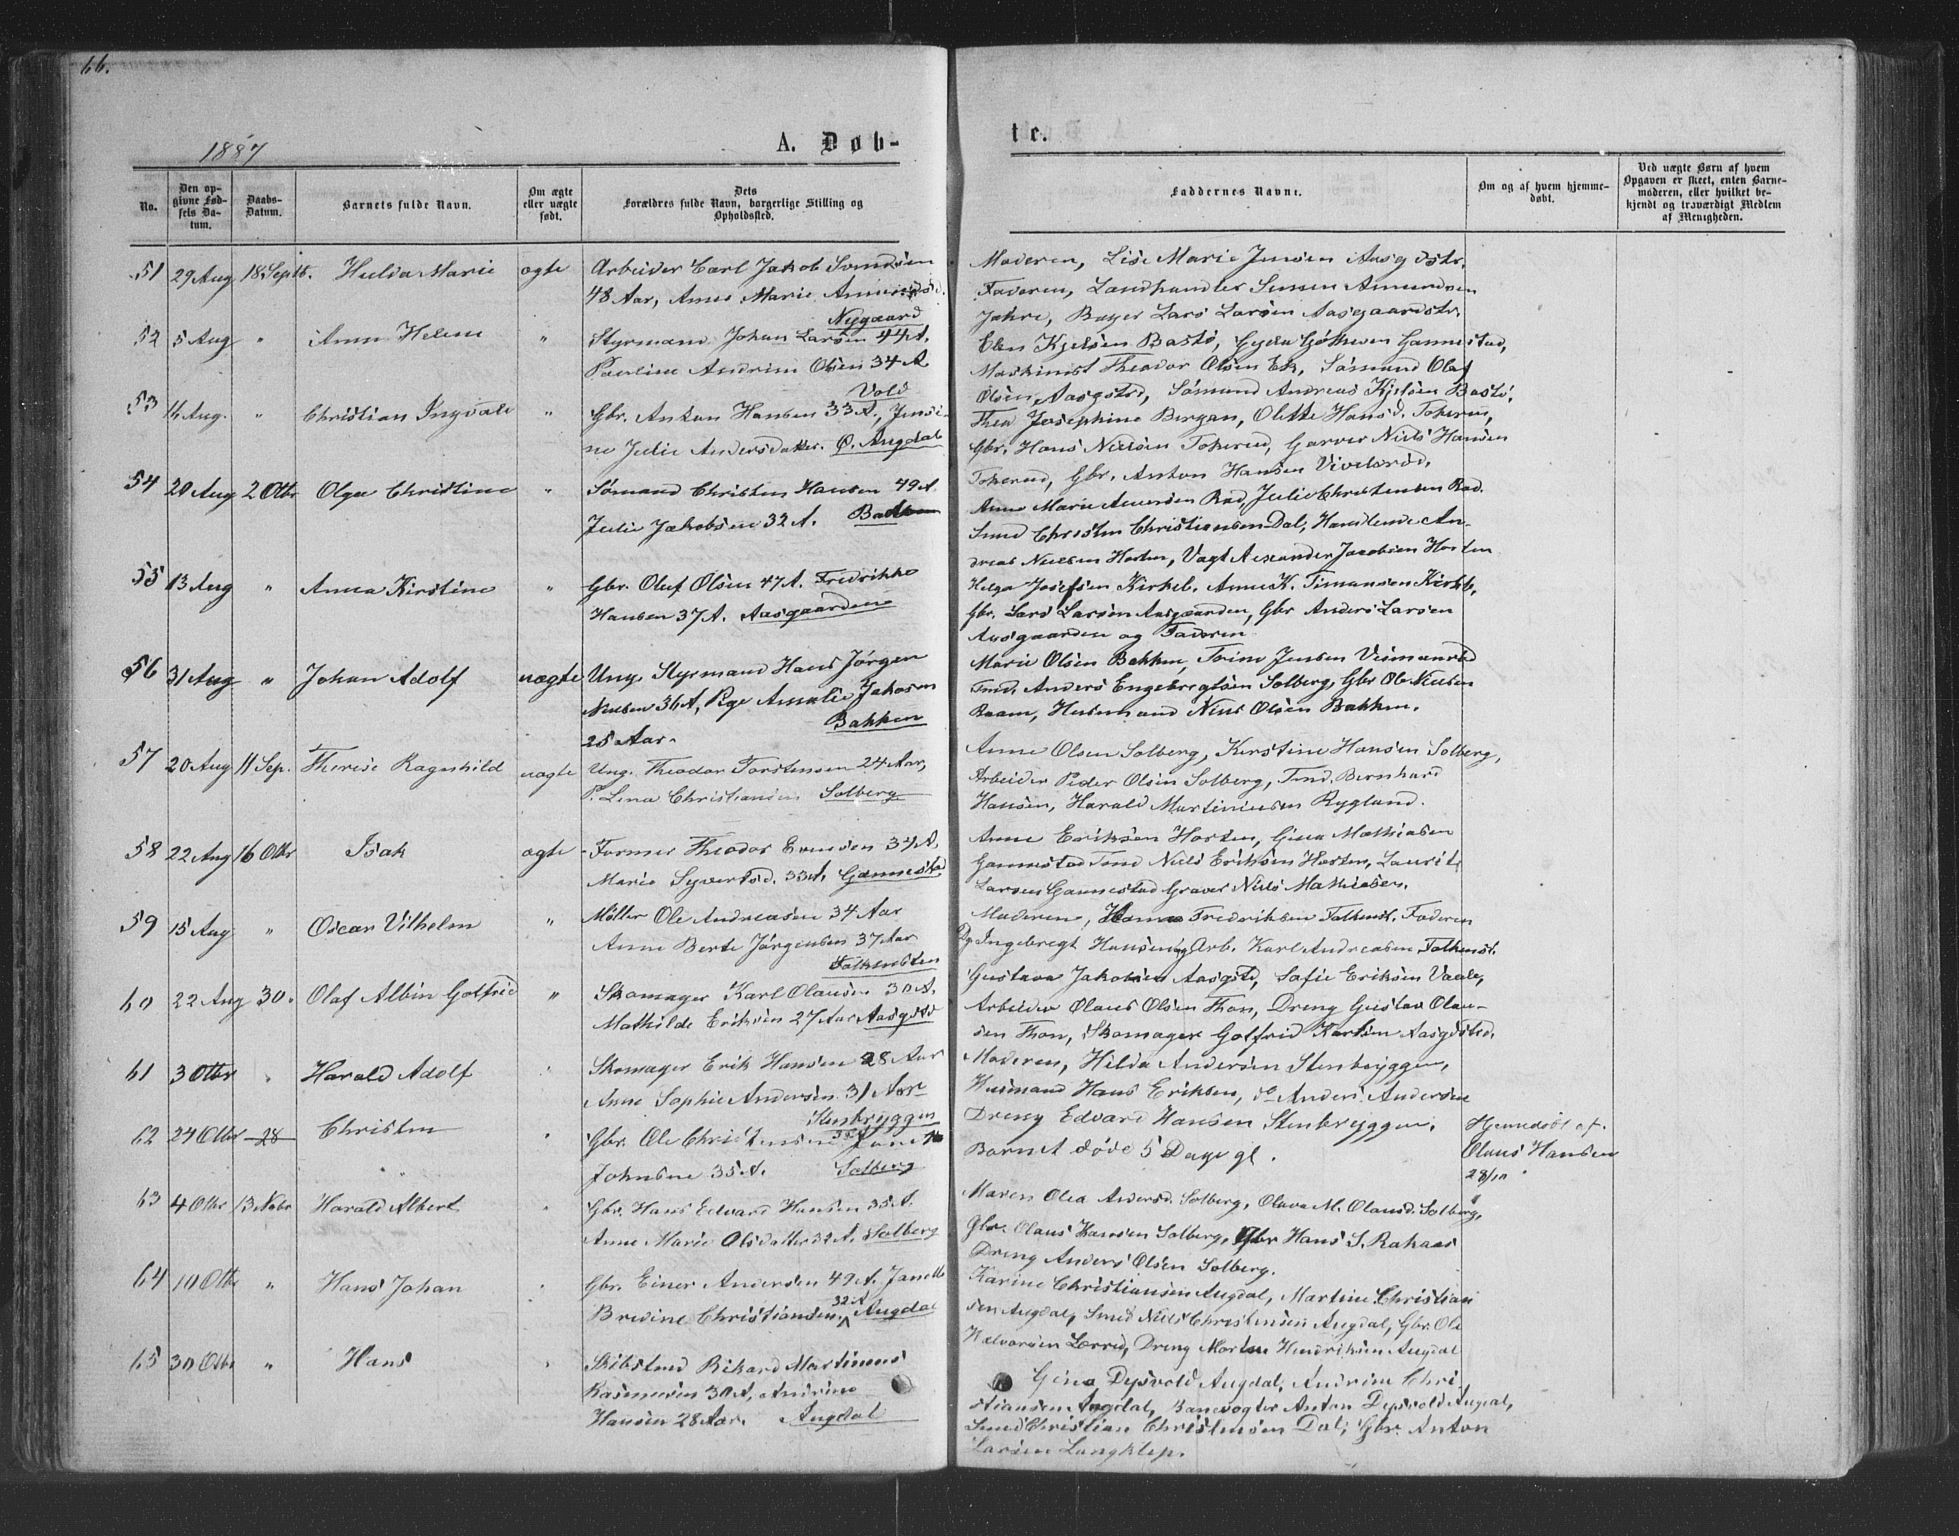 66.
1887
A. Døb-
te.
No.
Den op-
givne Fød-
sels Da-
tum.
Daabs-
Datum.
Barnets fulde Navn.
Om ægte
eller uægte
født.
Dets
Forældres fulde Navn, borgerlige Stilling og
Opholdssted.
Faddernes Navne.
Om og af hvem hjemme-
døbt.
Ved uægte Børn af hvem
Opgaven er skeet, enten Barne-
moderen, eller hvilket be-
kjendt og troværdigt Medlem
af Menigheden.
51 29 Aug 18 Septb. Hulda Marie ægte Arbeider Carl Jakob Svendsen
48 Aar, Anne Marie
Nygaard
Moderen, Lise Marie Jensen Aasgdstr.
Faderen, Landhandler Amundsen
Jahre, Bager Lars Larsen Aasgaardstr.
52 5 Aug " Anna Helene " Styrmand Johan Larsen 44 A.
Pauline Andrine Olsen 34 A
Vold
Elen Kjelsen Bastø, Gyda Gannestad,
Maskinist Theodor Olsen Ek, Sømand Olaf
Olsen, Aasgstrd, Sømand Andreas Kjelsen Bastø.
53 16 Aug. " Christian Ingvald " Gbr. Anton Hansen 33 A., Jensi-
ne Julie Andersdatter. Ø. Augdal
Thea Josephine Bergan, Olette Hansd. Tokerud,
Gbr. Hans Nielsen Tokerud, Garver Niels Hansen
Tokerud, Gbr. Anton Hansen Vivelsrød.
54 20 Aug 2 Otbr Olga Christine " Sømand Christen Hansen 49 A.
Julie Jakobsen 32 A. Bakken
Anne Marie Rød, Julie Christensen Rød.
Smed Christen Christiansen Dal, Handlende An-
dreas Nielsen Horten, Vagt Alexander Jacobsen Horten
55 13 Aug " Anna Kirstine " Gbr. Oluf Olsen 47 A. Fredrikke
Hansen 37 A. Aasgaarden
Helga Josefsen Kirkeb. Anne K. Timansen Kirkb,
Gbr. Lars Larsen Aasgaarden, Gbr Anders Larsen
Aasgaarden og Faderen.
56 31 Aug " Johan Adolf uægte Ung. Styrmand Hans Jørgen
Nielsen 36 A, Pige Amalie Jakosen
Bakken
28 Aar.
Marie Olsen Bakken, Trine Jensen
Tmd. Anders Engebregtsen Solberg, Gbr Ole Nielsen
Raam, Husmand Niels Olsen Bakken.
57 20 Aug 11 Sep. Therese Ragnhild uægte Ung. Theodor Torstensen 24 Aar,
P. Lena Christiansen Solberg
Anne Olsen Solberg, Kirstine Hansen Solberg,
Arbeider Peder Olsen Solberg, Tmd. Bernhard
Hansen, Harald Martiniusen Rygland.
58 22 Aug 16 Otbr Isak ægte Former Theodor Evensen 34 A,
Marie Syvertsd. 33 A, Gannestad
Anne Eriksen Horten, Gina Mathiesen
Gannestad Tmd Niels Eriksen Horten, Laurits
Larsen Gannestad Graver Niels Mathiesen.
59 15 Aug " Oscar Vilhelm " Møller Ole Andreasen 34 Aar
Anne Berte Jørgensen 37 Aar
Falkensten
Moderen, Hanna Fredriksen Falkenst. Faderen
Ingebregt Hansen og Arb. Karl Andreasen Falkenst.
60 22 Aug 30. Olaf Albin Gotfrid " Skomager Karl Olausen 30 A.
Mathilde Eriksen 27 Aar Aasgstr
Gustava Jakobsen Aasgstd, Sofie Eriksen Vaale,
Arbeider Olaus Olsen Thon, Dreng Gustav Olau-
sen Thon, Skomager Gotfrid Karlsen Aasgdstrd.
61 3 Otbr " Harald Adolf " Skomager Erik Hansen 28 Aar
Anne Sophie Andersen 31 Aar
Stenbryggen
Moderen, Hilda Andersen Stenbryggen,
Husmand Hans Eriksen, do Anders Andersen
Dreng Edvard Hansen Stenbryggen.
62 24 Otbr 28 Christen " Gbr. Ole Christensen 35 A
Johnsen 35 A. Solberg
Barnet døde 5 Dage gl.
Hjemedøbt af
Olaus Hansen
28/10
63 4 Otbr 13 Nobr Harald Albert " Gbr. Hans Edvard Hansen 35 A.
Anne Marie Olsdatter 32 A, Solberg
Maren Olea Andersd. Solberg, Olava M. Olausd. Solberg,
Gbr. Olaus Hansen Solberg, Gbr Hans S. Rahaas
Dreng Anders Olsen Solberg.
64 10 Otbr " Hans Johan " Gbr. Einer Andersen 49 A. Janette
Bredine Christiansen, 32 A Augdal
Karine Christiansen Augdal, Martine Christian
sen Augdal, Smed Niels Christensen Augdal, Gbr. Ole
Halvorsen Lørred, Dreng Morten Hendriksen Augdal
65 30 Otbr " Hans " Skibstmd Rikard Martinius
Rasmusen 30 A, Andrine
Hansen 28 Aar. Augdal
Gina Dysvold Augdal, Andrine Chri
stiansen Augdal, Banevogter Anton Dysvold Augdal,
Smed Christian Christensen Dal, Gbr. Anton
Larsen Langklep.